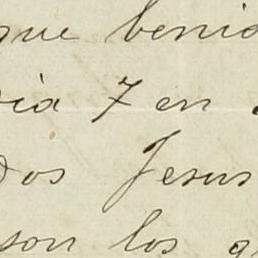 que benid
dia 7 en
dos Jesus
son los q